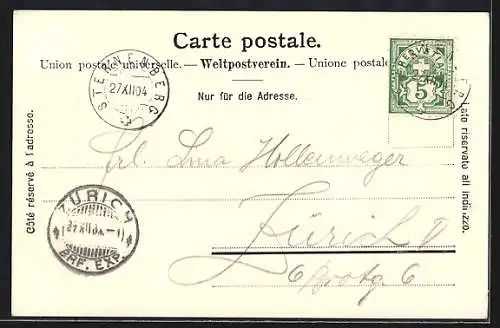 Carte postale.
Union postale universelle. — Weltpostverein. — Unione postale
Nur für die Adresse.
STERNENBERG
27 XII 04
HELVETIA
5
Côté réservé à l'adresse.
Lato riservato all indirizzo.
Frl. Lina Hollenweger
Zürich V
6
6
ZÜRICH
27 XII 04 – 11
BRF. EXP.